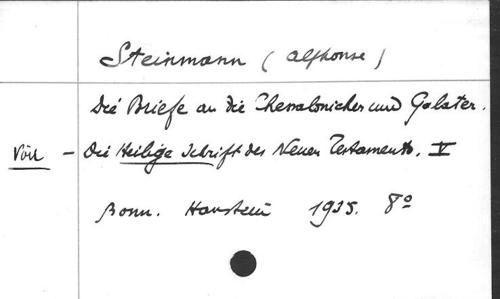 Steinmann (Alphonse)
Die Briefe an die Thessalonicher und Galater.
Voir – Die Heilige Schrift des Neuen Testaments. V
Bonn. Hanstein 1935. 8°